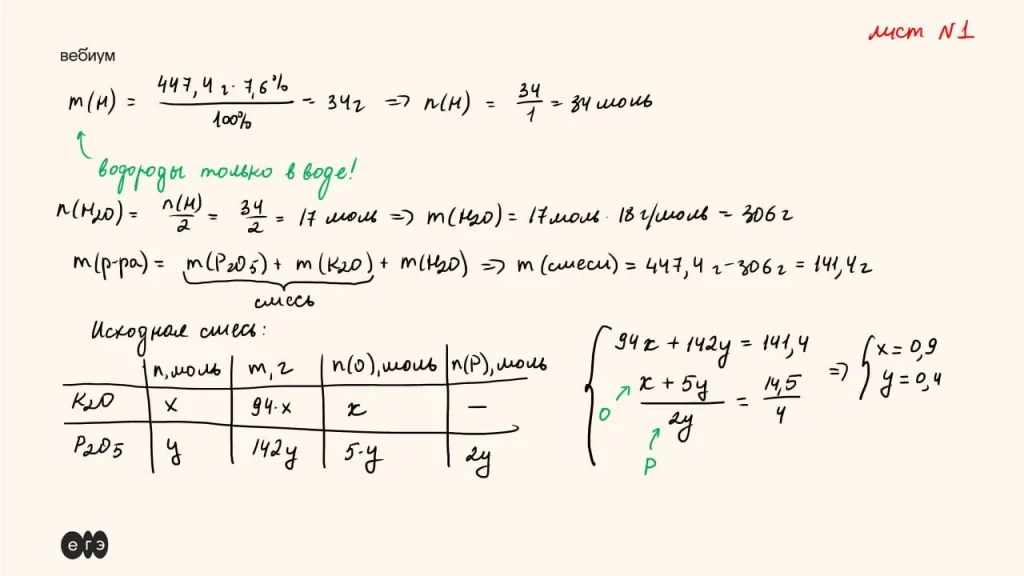 лист N1
вебиум
m(H) = 447,4 г · 7,6% / 100% = 34 г => n(H) = 34/1 = 34 моль
водороды только в воде!
n(H2O) = n(H)/2 = 34/2 = 17 моль => m(H2O) = 17 моль · 18 г/моль = 306 г
m(р-ра) = m(P2O5) + m(K2O) + m(H2O) => m(смеси) = 447,4 г - 306 г = 141,4 г
смесь
Исходная смесь:
n, моль m, г n(O), моль n(P), моль
K2O x 94·x x —
P2O5 y 142y 5·y 2y
94x + 142y = 141,4
x + 5y / 2y = 14,5 / 4
O
P
=> x = 0,9
y = 0,4
егэ